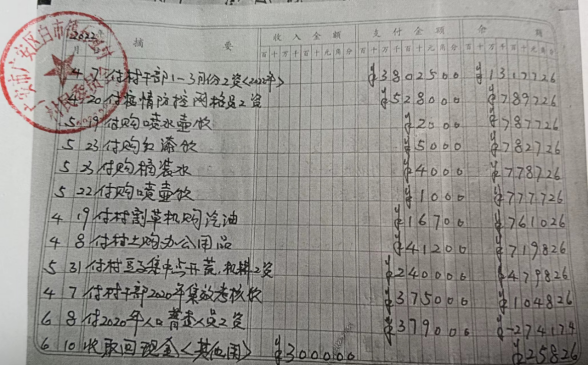 2022年 摘 要 收入金额 支付金额 余 额
月 百十万千百十元角分 百十万千百十元角分 百十万千百十元角分
4 7 付村干部1-3月份工资<2022年> ¥3802500 ¥1317726
4 20 付疫情防控网格员工资 ¥528000 ¥789726
5 19 付购喷水壶款 ¥2000 ¥787726
5 23 付购红漆款 ¥5000 ¥782726
5 23 付购桶装水 ¥4000 ¥778726
5 22 付购喷壶款 ¥1000 ¥777726
4 19 付村割草机购汽油 ¥16700 ¥761026
4 8 付村上购办公用品 ¥41200 ¥719826
5 31 付村集中 开荒,机耕工资 ¥240000 ¥479826
4 7 付村干部2020年绩效考核款 ¥375000 ¥104826
6 8 付2020年人口普查人员工资 ¥379000 ¥-274174
6 10 收取回现金<其他用> ¥300000 ¥25826
广安市广安区白市镇
村民委员会